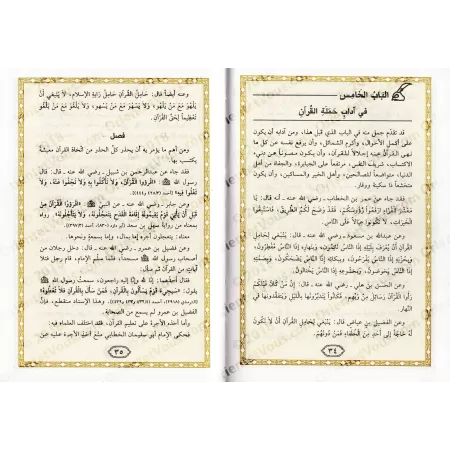 الباب الخامس
في آداب حملة القرآن
قد تقدم جمل منه في الباب الذي قبل هذا، ومن آدابه أن يكون
على أكمل الأحوال، وأكرم الشمائل، وأن يرفع نفسه عن كل ما
نهى القرآن عنه إجلالاً للقرآن، وأن يكون مصوناً عن دنيء
الاكتساب، شريف النفس، مرتفعاً على الجبابرة، والجفاة من أهل
الدنيا، متواضعاً للصالحين، وأهل الخير، والمساكين، وأن يكون
متخشعاً ذا سكينة ووقار.
فقد جاء عن عمر بن الخطاب ـ رضي الله عنه ـ أنه قال: يا
معشر القراء ارفعوا رؤوسكم، فقد وضح لكم الطريق، فاستبقوا
الخيرات، لا تكونوا عيالاً على الناس.
وعن عبدالله بن مسعود ـ رضي الله عنه ـ قال: ينبغي لحامل
القرآن أن يعرف بليله إذا الناس نائمون، وبنهاره إذا الناس مفطرون،
وبحزنه إذا الناس يفرحون، وببكائه إذا الناس يضحكون، وبصمته
إذا الناس يخوضون، وبخشوعه إذا الناس يختالون.
وعن الحسن بن علي ـ رضي الله عنه ـ قال: إن من كان قبلكم
رأوا القرآن رسائل من ربهم، فكانوا يتدبرونها بالليل ويتفقدونها في
النهار.
وعن الفضيل بن عياض قال: ينبغي لحامل القرآن أن لا تكون
له حاجة إلى أحد من الخلفاء فمن دونهم.
٣٤
وعنه أيضاً قال: حامل القرآن حامل راية الإسلام، لا ينبغي أن
يلهو مع من يلهو، ولا يسهو مع من يسهو، ولا يلغو مع من يلغو
تعظيماً لحق القرآن.
فصل
ومن أهم ما يؤمر به أن يحذر كل الحذر من اتخاذ القرآن معيشة
يكتسب بها.
فقد جاء عن عبدالرحمن بن شبل ـ رضي الله عنه ـ قال: قال
رسول الله ﷺ: «اقرؤوا القرآن، ولا تأكلوا به ولا تجفوا عنه، ولا
تغلوا فيه»
وعن جابر ـ رضي الله عنه ـ عن النبي ﷺ: «اقرؤوا القرآن من
قبل أن يأتي قوم يقيمونه إقامة القدح يتعجلونه، ولا يتأجلونه». رواه
بمعناه من رواية سهل بن سعد
معناه: يتعجلون أجره إما بمال، وإما بسمعة ونحوها.
وعن فضيل بن عمرو ـ رضي الله عنه ـ قال: دخل رجلان من
أصحاب رسول الله ﷺ مسجداً، فلما سلم الإمام، قام رجل فتلا
آيات من القرآن ثم سأل.
فقال أحدهما: إنا لله وإنا إليه راجعون، سمعت رسول الله ﷺ
يقول: «سيجيء قوم يسألون بالقرآن، فمن سأل بالقرآن فلا تعطوه»
وهذا الإسناد منقطع، فإن
فضيل بن عمرو لم يسمع من الصحابة.
وأما أخذ الأجرة على تعليم القرآن، فقد اختلف العلماء فيه:
فحكى الإمام أبو سليمان الخطابي منع أخذ الأجرة عليه عن
٣٥